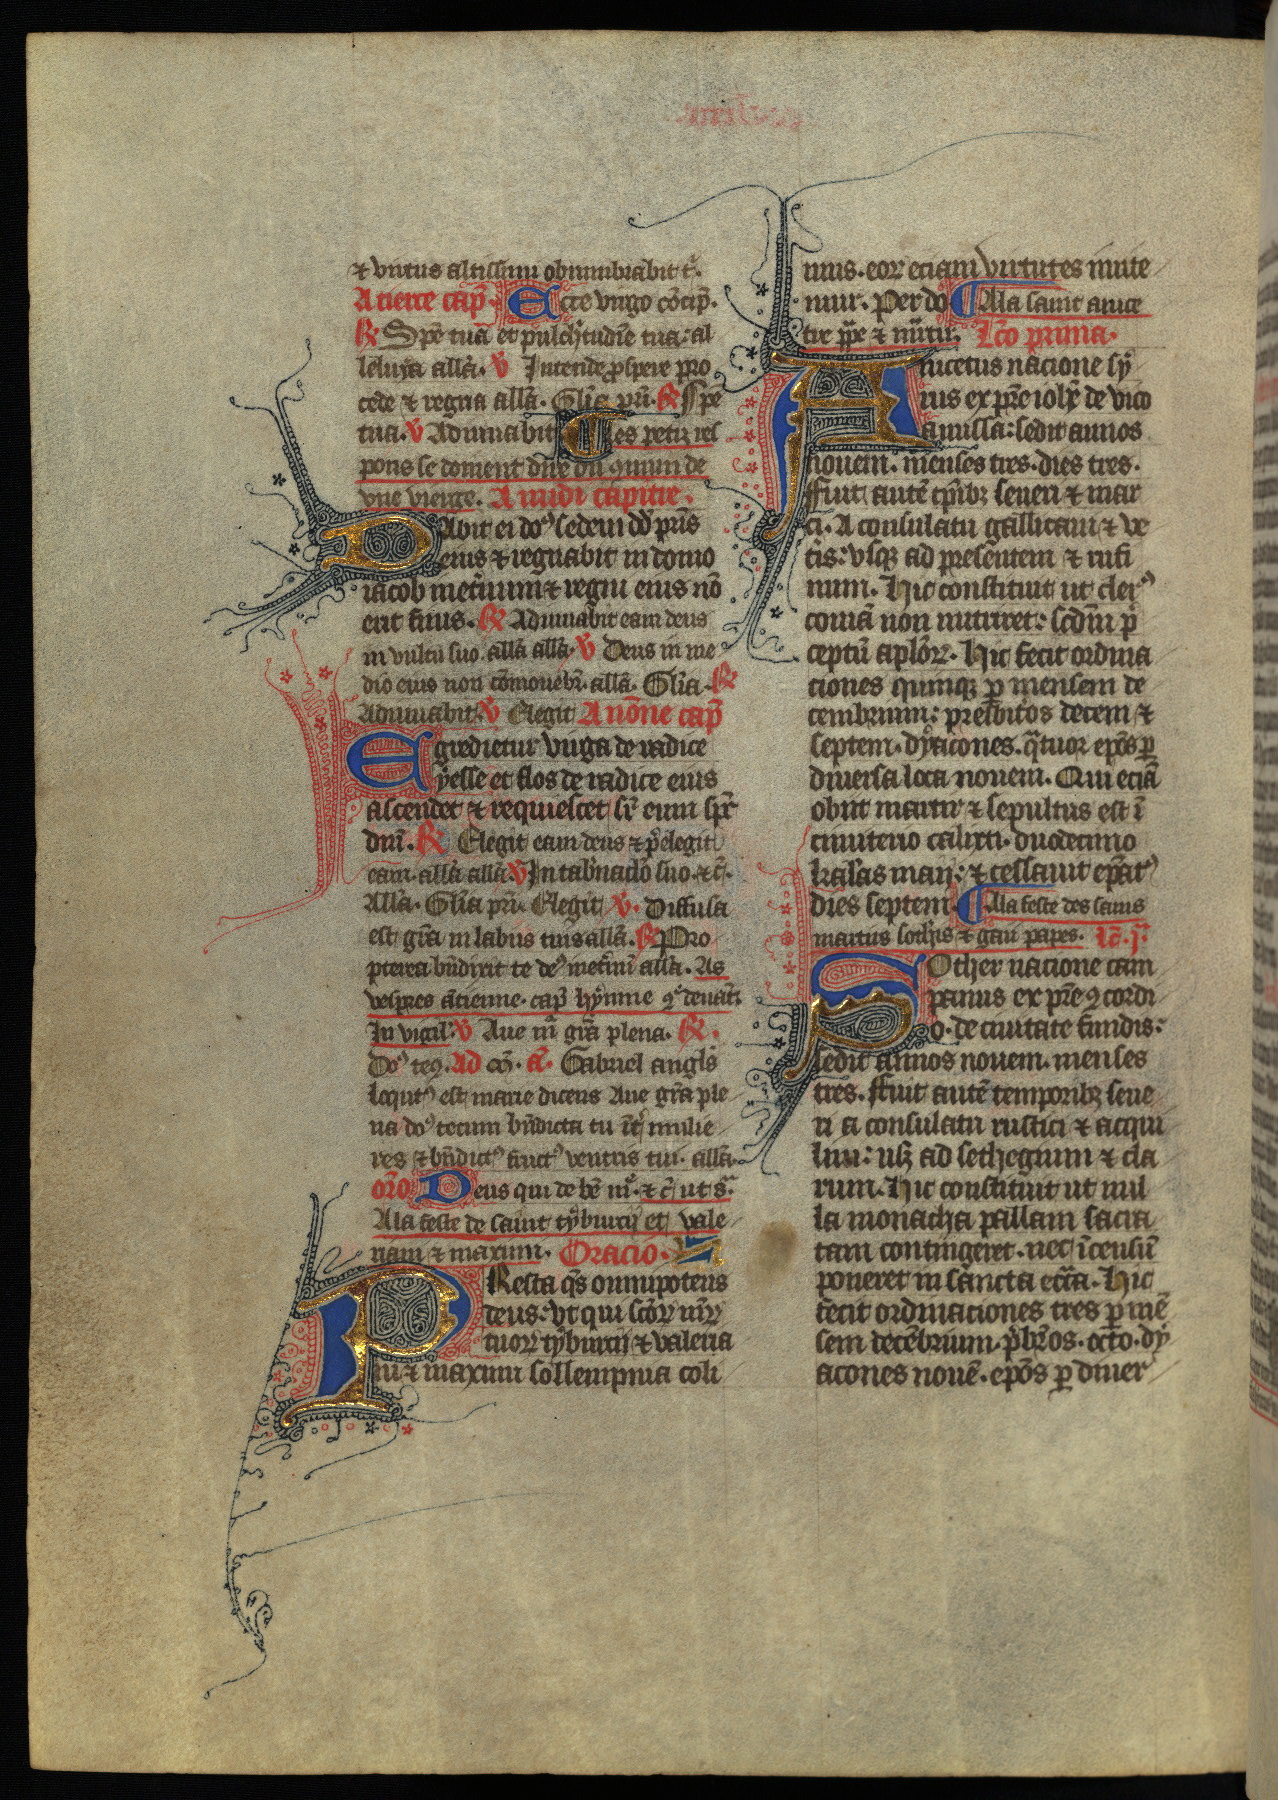 & virtus altissimi obumbrabit t̾.
A tierce cap̃. Ecce virgo cõcip̃.
℟ Spẽ tua et pulch̾tudiñe tua: al
leluya allã. ℣ Intende ꝓspere pro
cede & regna allã. Glĩa pr̃i. ℟ Spẽ
tua. ℣ Adiuuabit ¶ Ces petiz res
pons se doinent dire ou ꝯmun de
vne vierge. A midi capitre.
Dabit ei doꝰ sedem dd̃ pr̃is
eius & regnabit in domo
iacob inet̃num & regni eius nõ
erit finis. ℟ Adiuuabit eam deus
in vultu suo allã allã. ℣ Deus in me
dio eius non cõmouebr̃. allã. Glĩa. ℟
Adiuuabit. ℣ Elegit A nõne cap̃
Egredietur virga de radice
yesse et flos de radice eius
ascendet & requiescet sr̃ eum spr̃
dñi. ℟ Elegit eam deus & p̾elegit
eam. allã allã. ℣ In tab̾nacl̃o suo. &c̃.
Allã. Glĩa pr̃i. Elegit ℣. Diffusa
est gr̃a in labiis tuis allã. ℟ Pro
pterea bñdixit te deꝰ inet̃nũ allã. As
vespres ãtienne. cap̃ hỹmne ꝯ̾ deuãt.
In vigil̾. ℣ Aue mã gr̃a plena. ℟.
Doꝰ teꝯ. Ad cõ. ã. Gabriel angl̃s
loqutꝰ est marie dicens Aue gr̃a ple
na doꝰ tecum bñdicta tu ĩt̾ mulie
res & bñdictꝰ fructꝰ ventris tui. allã.
oro Deus qui de bẽ m̾. & c̃ ut s̃.
A la feste de saint tyburcij et vale
rian & maxim. Oracio.
Presta q̃s omnipotens
deus: vt qui sc̃oꝝ mr̃ꝝ
tuoꝝ tyburcij & valeria
ni & maximi sollempnia coli
mus. eoꝝ eciam virtutes imite
mur. Per do ¶ A la saint anice
tre pp̃e & m̃tir. Lc̃o prima.
Anicetus nacione sy
rus ex pr̃e ioħe de vico
amissa: sedit annos
nouem. menses tres. dies tres.
ffuit autẽ tp̃ribꝫ seueri & mar
ci. A consulatu gallicani & ve
t̾is: vsqꝫ ad presentem & rufi
num. Hic constituit ut clerꝰ
comã non nutriret: scd̃m p̾
ceptũ apl̃oꝝ. Hic fecit ordina
ciones quinqꝫ ꝑ mensem de
cembrium: presbitos decem &
septem. dyacones. q̾tuor ep̃os ꝑ
diuersa loca nouem. Qui eciã
obiit martir & sepultus est ĩ
cimiterio calixti. duodecimo
kal̃as maij: & cessauit ep̃atꝰ
dies septem ¶ A la feste des sains
martirs sothis & gaii papes. lc̃. j̾.
Sother nacione cam
panus ex pr̃e ꝯcordi
o. de ciuitate fundis:
sedit annos nouem. menses
tres. ffuit autẽ temporibꝫ seue
ri a consulatu rustici & acqui
lini: usqꝫ ad sethegium & cla
rum. Hic constituit ut nul
la monacha pallam sacra
tam contingeret. nec ĩcensũ
poneret in sancta ecc̃a. Hic
fecit ordinaciones tres ꝑ mẽ
sem decẽbrium. p̃br̃os. octo. dy
acones nouẽ. ep̃os ꝑ diuer